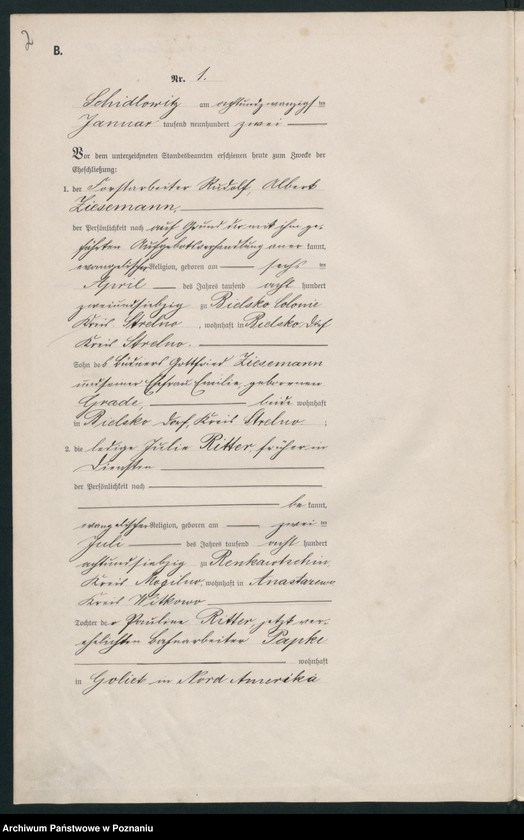 2
B.
Nr. 1.
Schidlowitz am achtundzwanzigsten
Januar tausend neunhundert zwei
Vor dem unterzeichneten Standesbeamten erschienen heute zum Zwecke der
Eheschließung:
1. der Forstarbeiter Rudolf, Albert
Ziesemann,
der Persönlichkeit nach auf Grund der mit ihm ge-
führten Aufgebotsverhandlung aner kannt,
evangelischer Religion, geboren am sechs ten
April des Jahres tausend acht hundert
zweiundsiebzig zu Bielsko Colonie
Kreis Strelno, wohnhaft in Bielsko, Dorf
Kreis Strelno.
Sohn des Büdners Gottfried Ziesemann
und seiner Ehefrau Emilie, geborenen
Grade, beide wohnhaft
in Bielsko Dorf, Kreis Strelno ;
2. die ledige Julie Ritter, früher in
Diensten
der Persönlichkeit nach
be kannt,
evangelischer Religion, geboren am zwei ten
Juli des Jahres tausend acht hundert
achtundsiebzig zu
Kreis Mogilno, wohnhaft in Anastazewo
Kreis Witkowo
Tochter der Pauline Ritter, jetzt ver-
ehelichten Bahnarbeiter Papke
wohnhaft
in in Nord Amerika
Archiwum Państwowe w Poznaniu